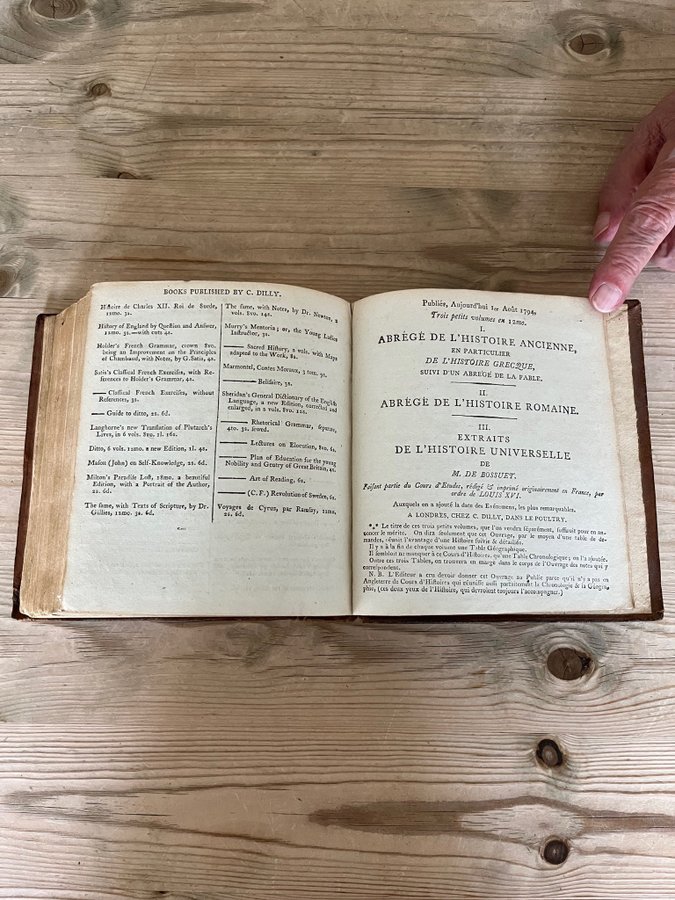 BOOKS PUBLISHED BY C. DILLY.
Histoire de Charles XII. Roi de Suede,
12mo. 3s.
History of England by Question and Answer,
12mo. 3s.—with cuts 4s.
Holder's French Grammar, crown 8vo.
being an Improvement on the Principles
of Chambaud, with Notes, by G. Satis, 4s.
Satis's Classical French Exercises, with Re-
ferences to Holder's Grammar, 4s.
—— Classical French Exercises, without
References, 3s.
—— Guide to ditto, 2s. 6d.
Langhorne's new Translation of Plutarch's
Lives, in 6 vols. 8vo. 1l. 16s.
Ditto, 6 vols. 12mo. a new Edition, 1l. 4s.
Mason (John) on Self-Knowledge, 2s. 6d.
Milton's Paradise Lost, 18mo. a beautiful
Edition, with a Portrait of the Author,
2s. 6d.
The same, with Texts of Scripture, by Dr.
Gillies, 12mo. 3s. 6d.
The same, with Notes, by Dr. Newton, 2
vols. 8vo. 14s.
Murry's Mentoria; or, the Young Ladies
Instructor, 3s.
—— Sacred History, 2 vols. with Maps
adapted to the Work, 8s.
Marmontel, Contes Moraux, 3 tom. 9s.
—— Belisaire, 3s.
Sheridan's General Dictionary of the English
Language, a new Edition, corrected and
enlarged, in 2 vols. 8vo.
—— Rhetorical Grammar, separate,
4to. 3s. sewed.
—— Lectures on Elocution, 8vo. 6s.
—— Plan of Education for the young
Nobility and Gentry of Great Britain, 4s.
—— Art of Reading, 6s.
—— (C. F.) Revolution of Sweden, 6s.
Voyages de Cyrus, par Ramsay, 12mo.
2s. 6d.
Publiés, Aujourd'hui 1er Août 1794,
Trois petits volumes en 12mo.
I.
ABRÉGÉ DE L'HISTOIRE ANCIENNE,
EN PARTICULIER
DE L'HISTOIRE GRECQUE,
SUIVI D'UN ABREGÉ DE LA FABLE.
II.
ABRÉGÉ DE L'HISTOIRE ROMAINE.
III.
EXTRAITS
DE L'HISTOIRE UNIVERSELLE
DE
M. DE BOSSUET.
Faisant partie du Cours d'Etudes, rédigé & imprimé originairement en France, par
ordre de LOUIS XVI.
Auxquels on a ajouté la date des Evénemens, les plus remarquables.
A LONDRES, CHEZ C. DILLY, DANS LE POULTRY.
*,* Le titre de ces trois petits volumes, que l'on vendra séparément, suffiroit pour en an-
noncer le mérite. On dira seulement que cet Ouvrage, par le moyen d'une table de de-
mandes, réunit l'avantage d'une Histoire suivie & détaillée.
Il y a à la fin de chaque volume une Table Géographique.
Il sembloit ne manquer à ce Cours d'Histoires, qu'une Table Chronologique; on l'a ajoutée.
Outre ces trois Tables, on trouvera en marge dans le corps de l'Ouvrage des notes qui y
correspondent.
N. B. L'Editeur a cru devoir donner cet Ouvrage au Public parce qu'il n'y a pas en
Angleterre de Cours d'Histoires qui réunisse aussi parfaitement la Chronologie & la Géogra-
phie, (ces deux yeux de l'Histoire, qui devroient toujours l'accompagner.)